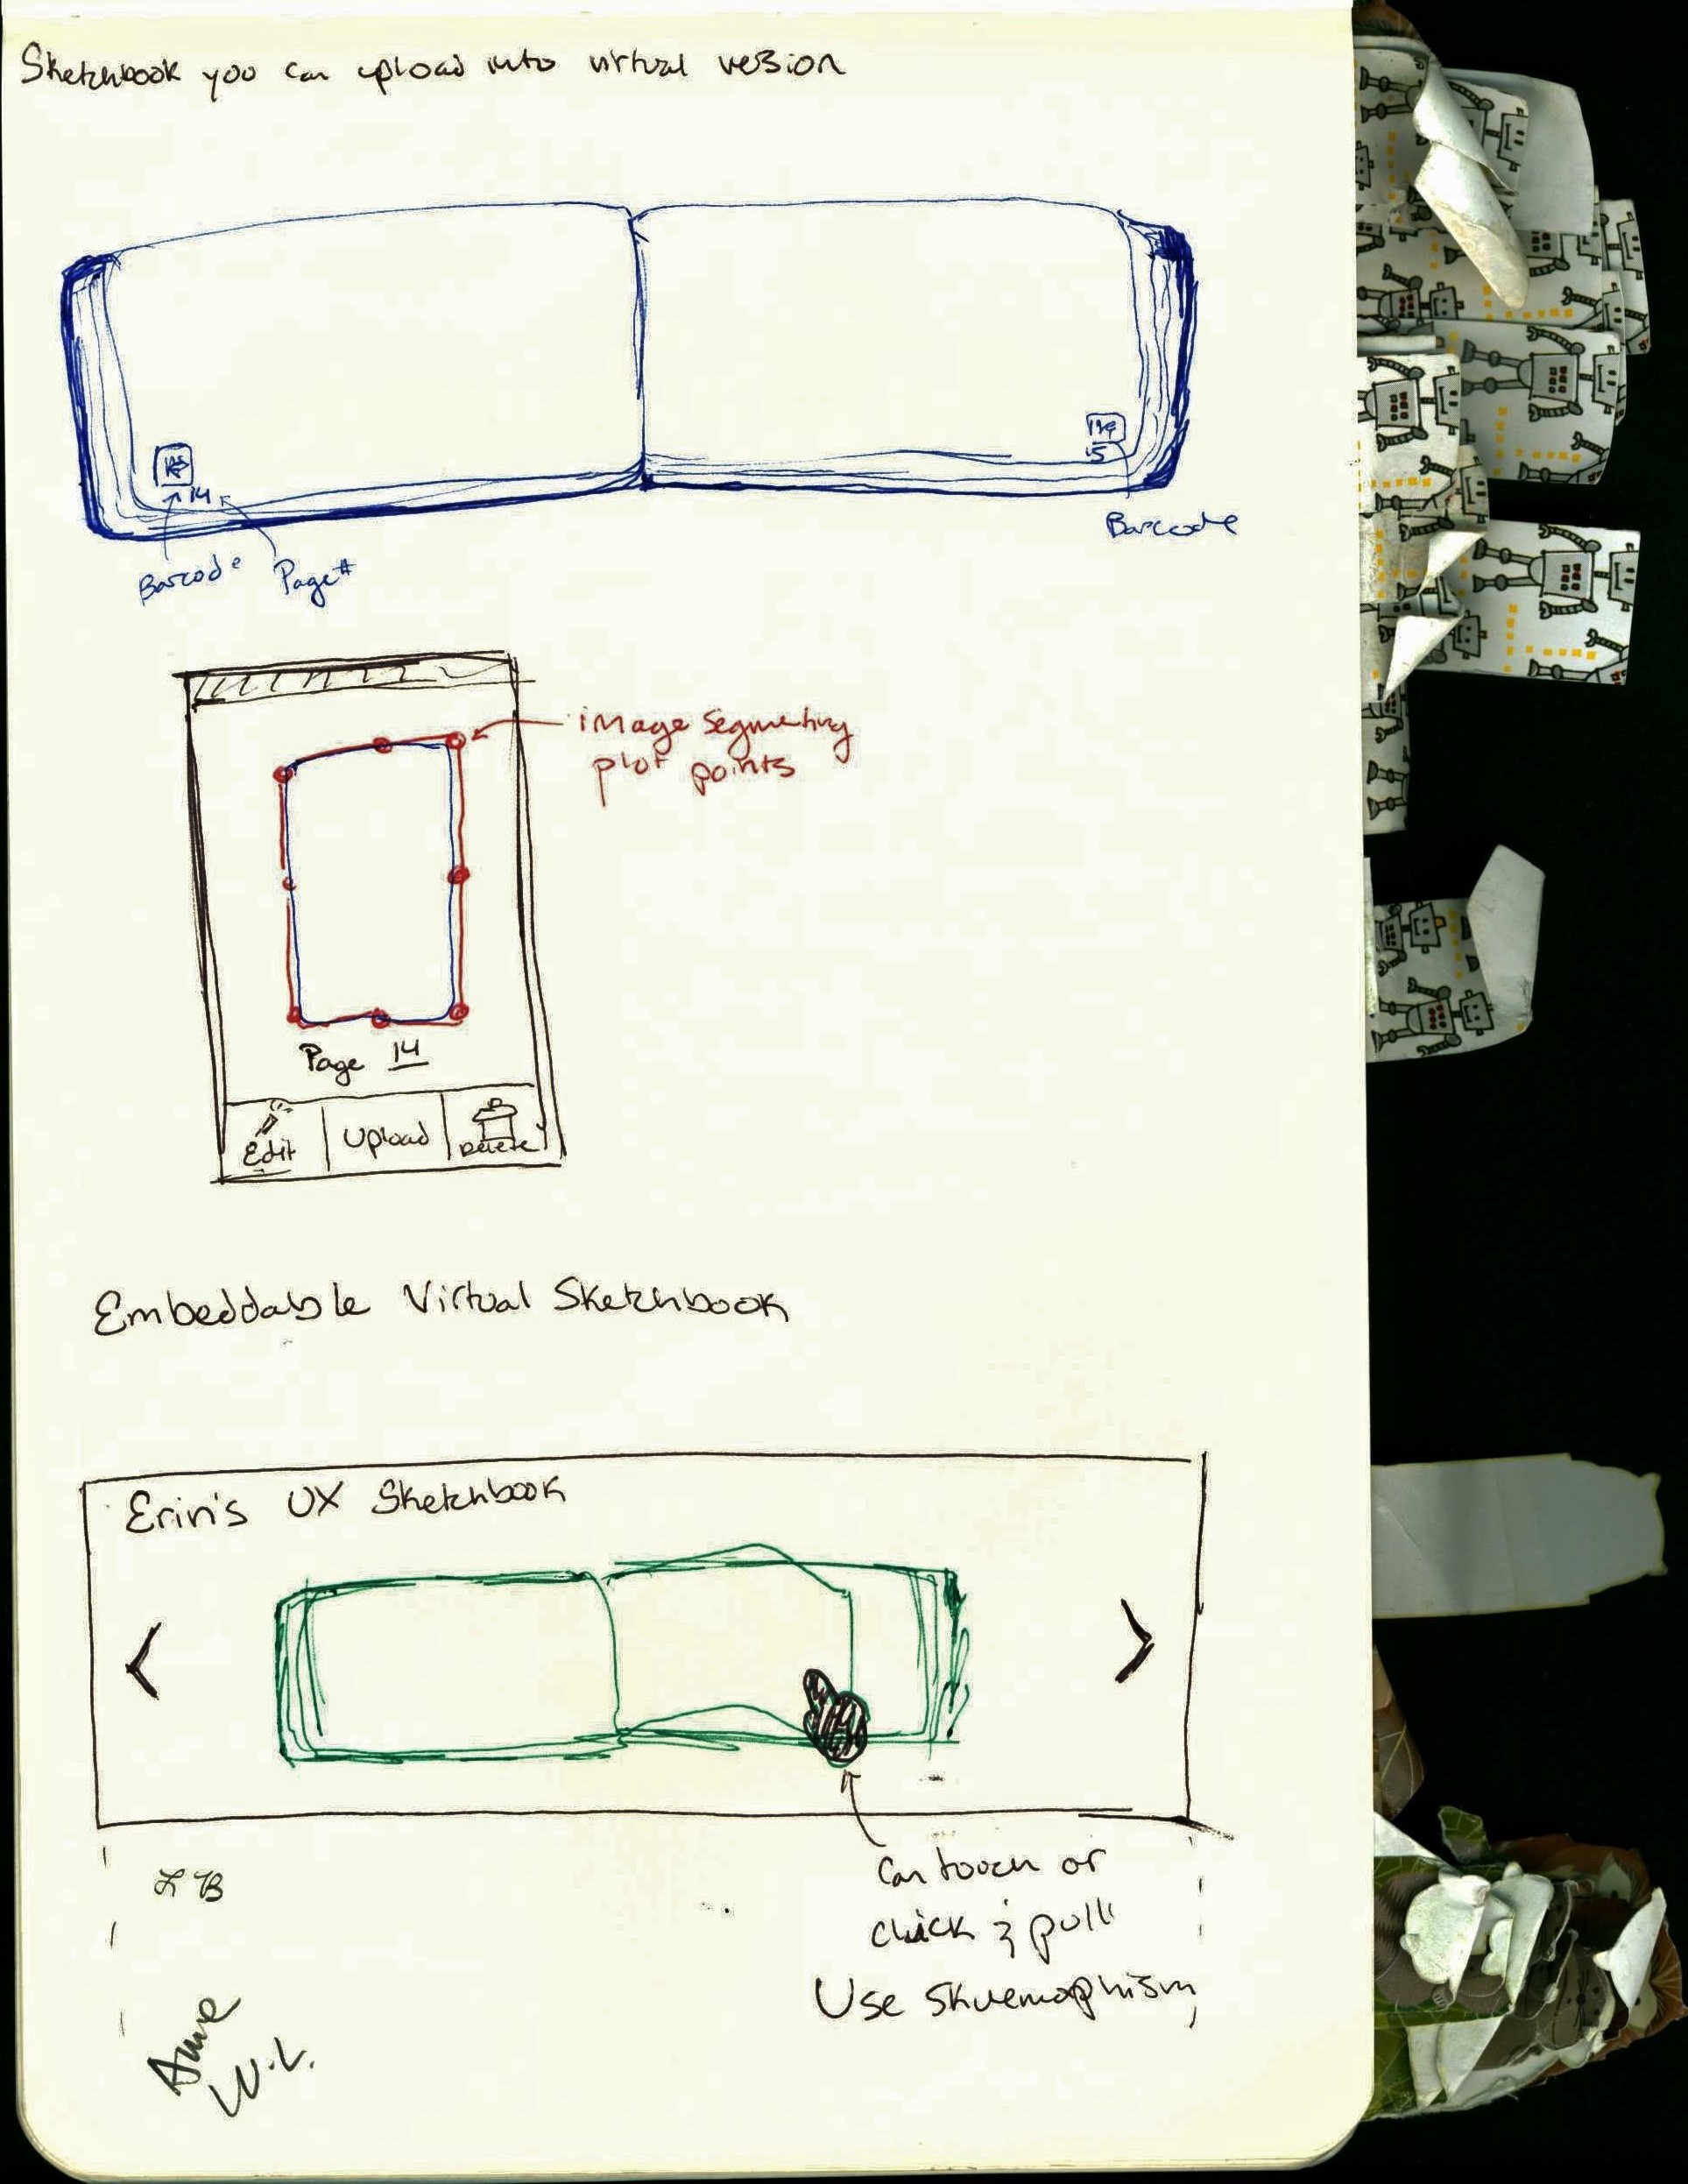 Sketchbook you can upload into virtual version
14
15
Barcode
Barcode
Page#
image segmenting
plot points
Page 14
Edit
Upload
Delete
Embeddable Virtual Sketchbook
Erin's UX Sketchbook
<
>
Can touch or
click & pull
Use skuemophism
LB
W.L.